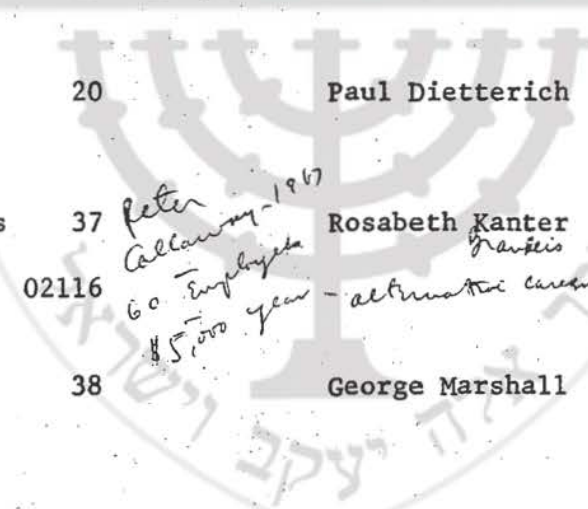 20 Paul Dietterich
Peter
Callaway - 1967
s 37 Rosabeth Kanter
Brandeis
02116 60 Employees
$5,000 year - alternative career
38 George Marshall
ויש יעקב